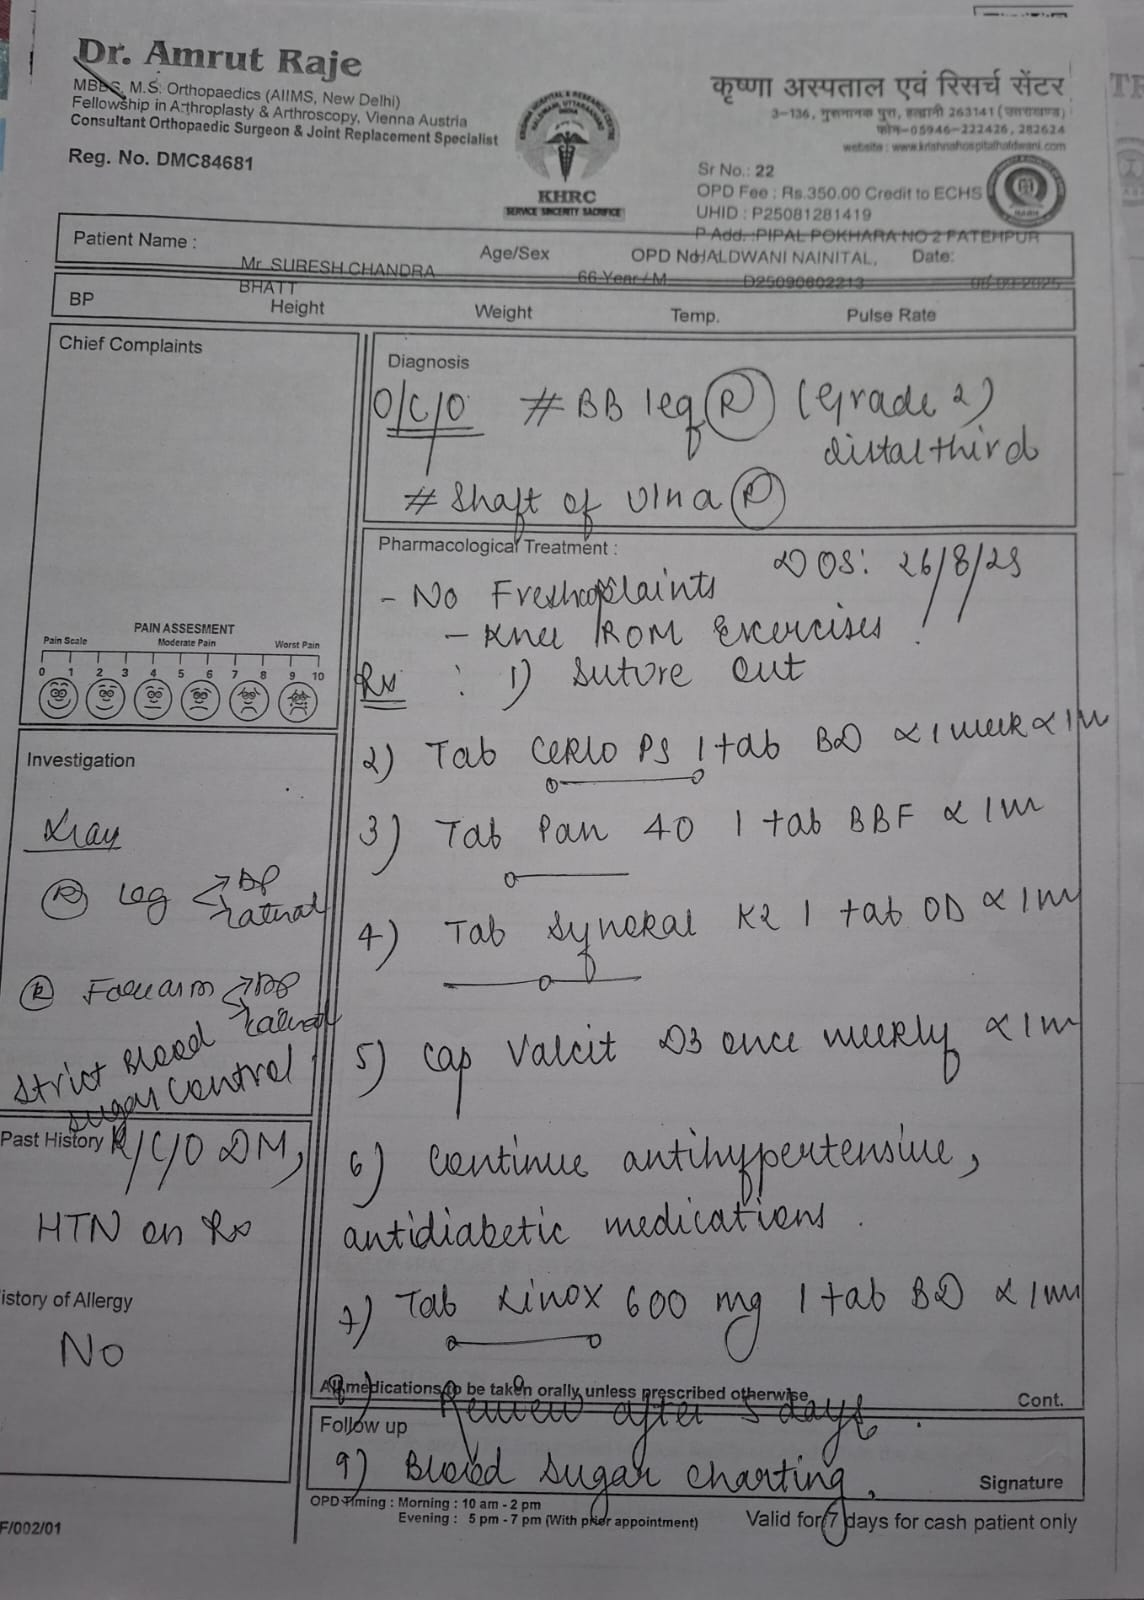 Dr. Amrut Raje
MBBS, M.S. Orthopaedics (AIIMS, New Delhi)
Fellowship in Arthroplasty & Arthroscopy, Vienna Austria
Consultant Orthopaedic Surgeon & Joint Replacement Specialist
Reg. No. DMC84681
KRISHNA HOSPITAL & RESEARCH CENTRE
HALDWANI, UTTARAKHAND
INDIA
KHRC
SERVICE SINCERITY SACRIFICE
कृष्णा अस्पताल एवं रिसर्च सेंटर
3-136, गुरूनानक पुरा, हल्द्वानी 263141 (उत्तराखण्ड)
फोन-05946-222426, 282624
website : www.krishnahospitalhaldwani.com
Sr No.: 22
OPD Fee : Rs.350.00 Credit to ECHS
UHID : P25081281419
P.Add. :PIPAL POKHARA NO 2 FATEHPUR
HALDWANI NAINITAL,
Patient Name :
Mr. SURESH CHANDRA
BHATT
Age/Sex
66 Year / M
OPD No
D25090602213
Date:
BP
Height
Weight
Temp.
Pulse Rate
Chief Complaints
PAIN ASSESMENT
Pain Scale Moderate Pain Worst Pain
0 1 2 3 4 5 6 7 8 9 10
Investigation
Xray
(R) Leg AP
lateral
(R) Forearm AP
lateral
Strict Blood
sugar control
Past History K/C/O DM,
HTN on Rx
istory of Allergy
No
Diagnosis
O/C/O # BB leg (R) (Grade 2)
distal third
# Shaft of Ulna (R)
Pharmacological Treatment :
DOS: 26/8/25
- No Fresh complaints
- Knee ROM Exercises
Rx : 1) Suture Out
2) Tab CERLO PS 1 tab BD x 1 week x 1m
3) Tab Pan 40 1 tab BBF x 1m
4) Tab Synekal K2 1 tab OD x 1m
5) Cap Valcit D3 once weekly x 1m
6) Continue antihypertensive,
antidiabetic medications.
7) Tab Linox 600 mg 1 tab BD x 1m
All medications to be taken orally unless prescribed otherwise
Cont.
8) Review after 5 days.
Follow up
9) Blood sugar charting,
Signature
OPD Timing : Morning : 10 am - 2 pm
Evening : 5 pm - 7 pm (With prior appointment)
Valid for 7 days for cash patient only
F/002/01